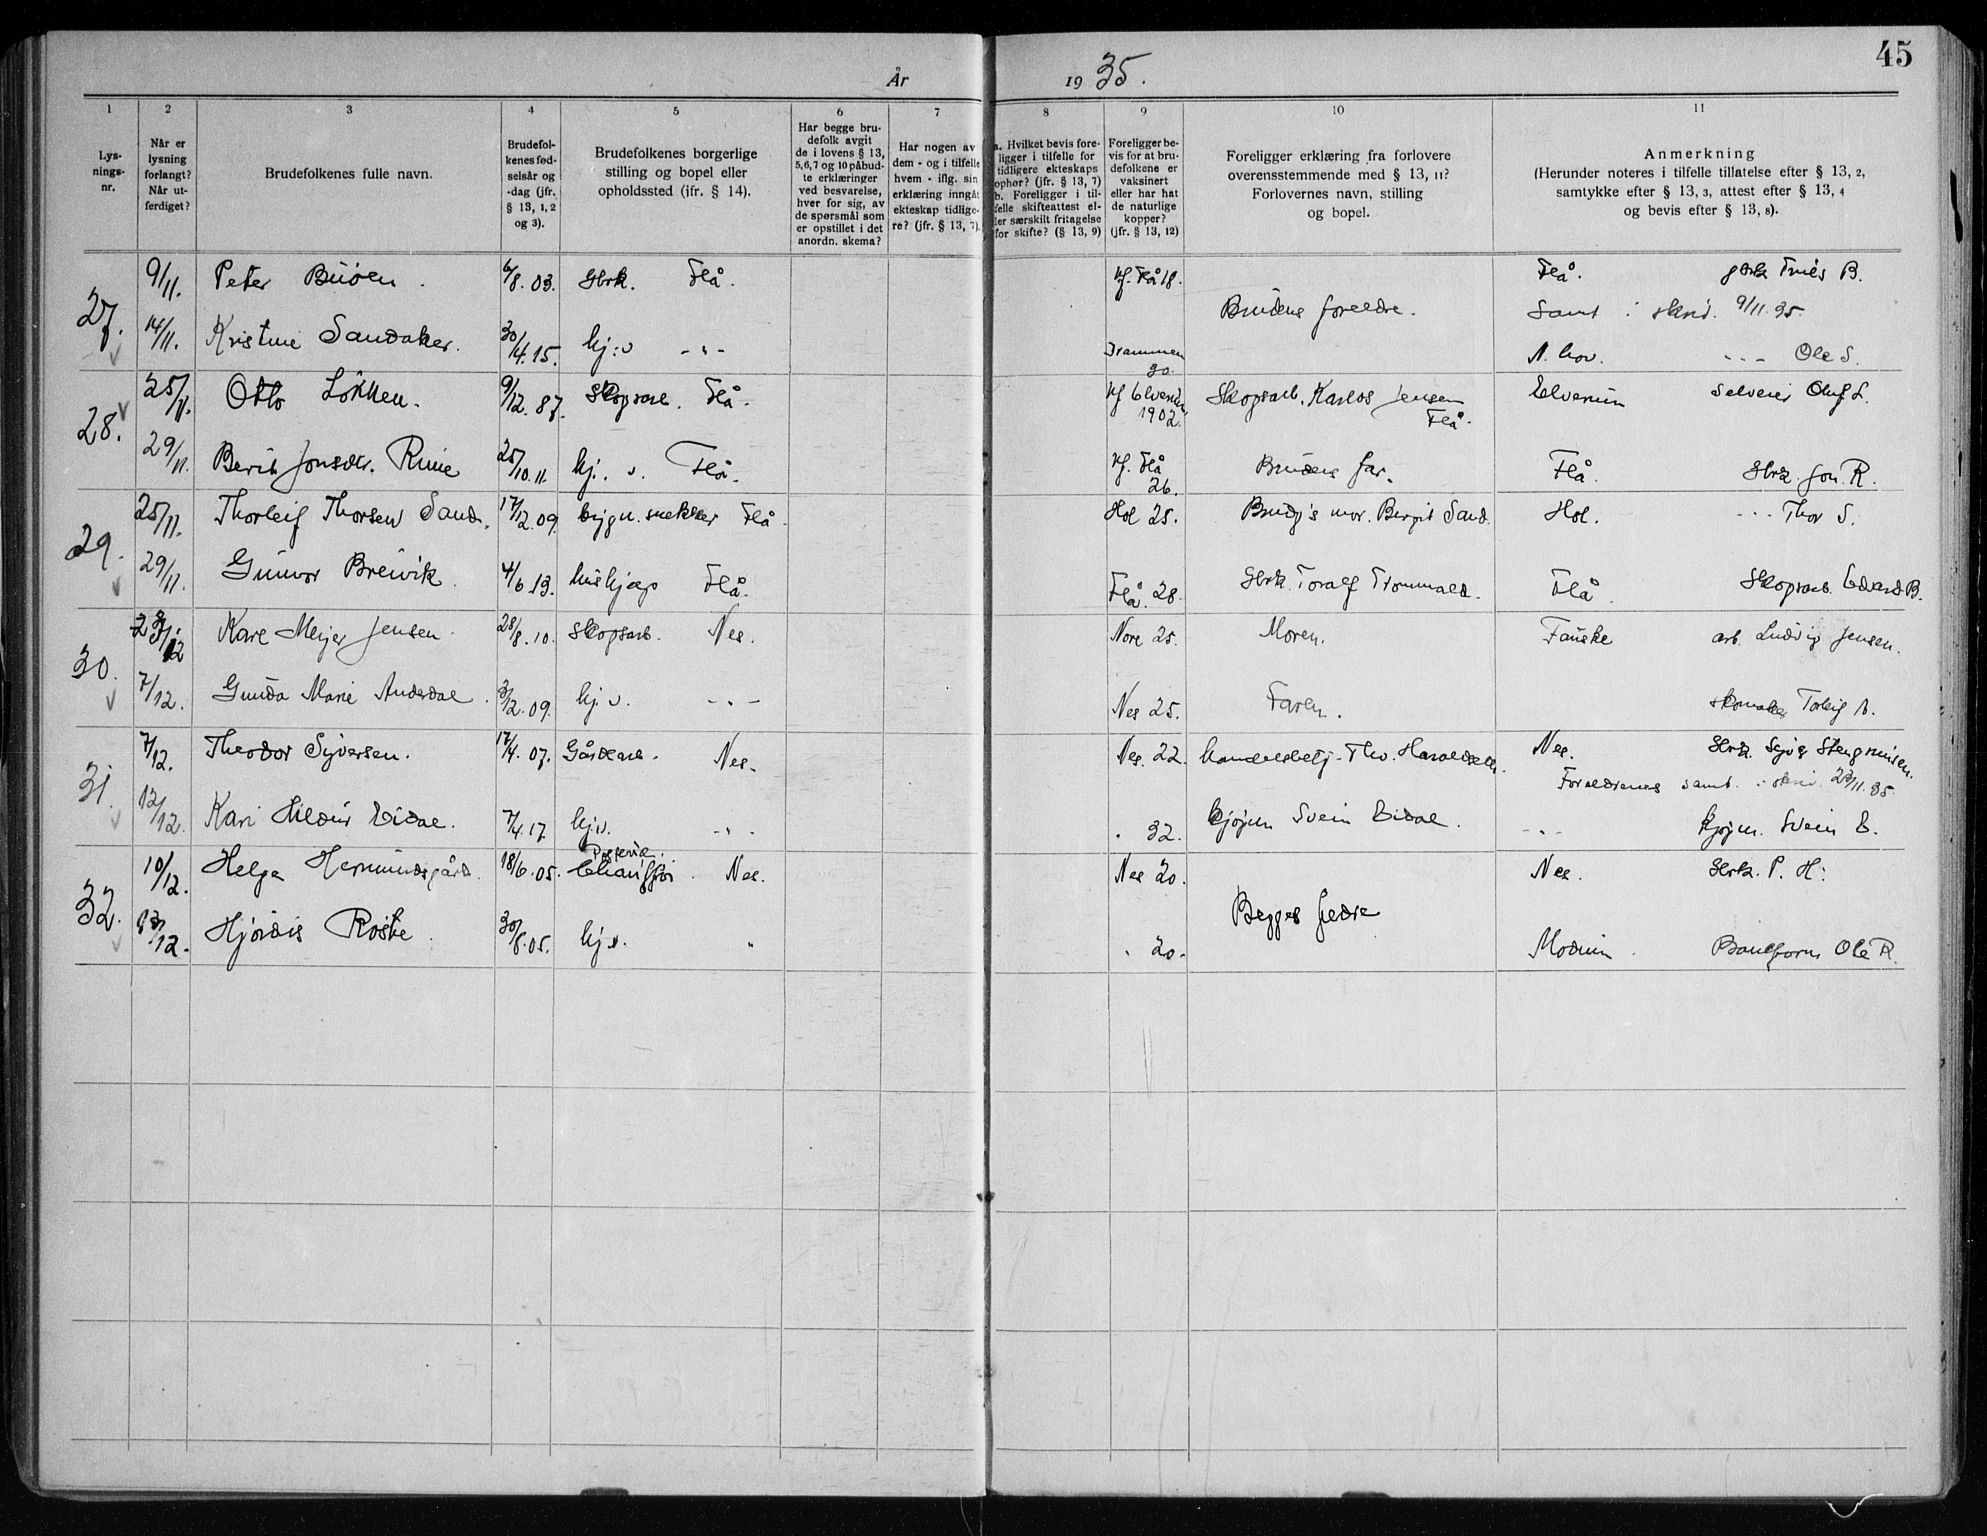 År 1935.
45
1 2 3 4 5 6 7 8 9 10 11
Lys-
nings-
nr.
Når er
lysning
forlangt?
Når ut-
ferdiget?
Brudefolkenes fulle navn.
Brudefol-
kenes fød-
selsår og
-dag (jfr.
§ 13, 1, 2
og 3).
Brudefolkenes borgerlige
stilling og bopel eller
opholdssted (jfr. § 14).
Har begge bru-
defolk avgit
de i lovens § 13,
5, 6, 7 og 10 påbud-
te erklæringer
ved besvarelse,
hver for sig, av
de spørsmål som
er opstillet i det
anordn. skema?
Har nogen av
dem - og i tilfelle
hvem - iflg. sin
erklæring inngåt
ekteskap tidlige-
re? (jfr. § 13, 7).
a. Hvilket bevis fore-
ligger i tilfelle for
tidligere ekteskaps
ophør? (jfr. § 13, 7)
b. Foreligger i til-
felle skifteattest el-
ler særskilt fritagelse
for skifte? (§ 13, 9)
Foreligger be-
vis for at bru-
defolkene er
vaksinert
eller har hat
de naturlige
kopper?
(jfr. § 13, 12)
Foreligger erklæring fra forlovere
overensstemmende med § 13, 11?
Forlovernes navn, stilling
og bopel.
Anmerkning
(Herunder noteres i tilfelle tillatelse efter § 13, 2,
samtykke efter § 13, 3, attest efter § 13, 4
og bevis efter § 13, 8).
27. 9/11. Peter Buøen. 6/8. 03. Gbrk. Flå. Kf. Flå 18. Flå. gbrk B.
Brudens foreldre. Samt i skriv. 9/11. 35.
14/11. Kristine Sandaker. 30/4. 15. hj: v - " - Drammen 30. Ole S.
28. 25/11. Otto Løkken. 9/12. 87. Skogsarb. Flå. Kf Elverum 1902. Skogsarb. Karlos Jensen Flå. Elverum Oluf L.
29/11. Berit Jonsdtr. Rime 25/10. 11. hj. v. Flå. Kf. Flå 26. Brudens far. Flå. Gbrk Jon. R.
29. 25/11. Thorleif Thorsen Sand. 17/12. 09. bygn. snekker Flå. Hol 25. Brudg's mor. Bergit Sand. Hol. - - - Thor S.
29/11. Gunvor Breivik 4/6 13. hushjelp Flå. Flå. 28. Gbrk. Toralf Trommald. Flå. Skogsarb. Edvard B.
30. /12 Kåre Meyer Jensen. 28/8. 10. Skogsarb. Nes. Nore 25. Moren. Fauske arb. Ludvig Jensen.
7/12. Gunda Marie Andedal. 3/12. 09. hj. v. - " - Nes 25. Faren. Skomaker Torleif A.
31. 7/12. Theodor Syversen. 17/4. 07. Gårdsarb. Nes. Nes. 22. Handelsbetj. Thv. Haraldsen Nes. Gbrk.
Foreldrenes samt. i skriv. /11. 35.
12/12. Kari Hildur Eidal. 7/4. 17. hj.v. - " - " 32. Kjøpm Svein Eidal. - " - Kjøpm. Svein E.
32. 10/12. Helge Hermundsgård. 18/6. 05. Chauffør. Nes. Nes 20. Nes. Gbrk. P. H.
Begges fedre
/12. Hjørdis Røste. 30/8. 05. hj.v. " " 20. Modum. Baneform Ole R.